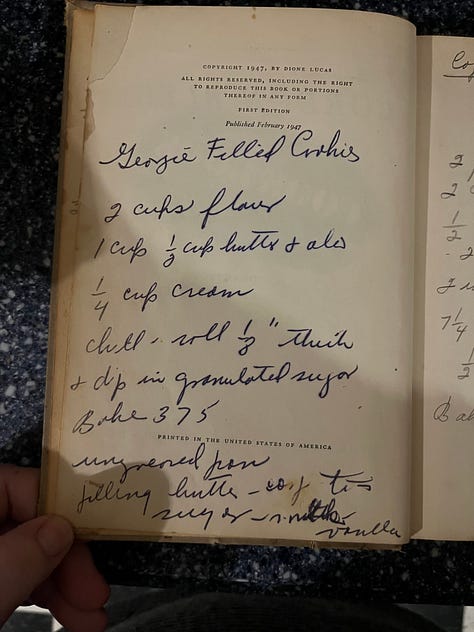 COPYRIGHT 1947, BY DIONE LUCAS
ALL RIGHTS RESERVED, INCLUDING THE RIGHT
TO REPRODUCE THIS BOOK OR PORTIONS
THEREOF IN ANY FORM
FIRST EDITION
Published February 1947
Georgie Filled Cookies
2 cups flour
1 cup ½ cup butter &
¼ cup cream
chill - roll ⅓" thick
& dip in granulated sugar
Bake 375
PRINTED IN THE UNITED STATES OF AMERICA
ungreased pan
filling butter -
sugar -
vanilla
2
2
½
2
7¼
½